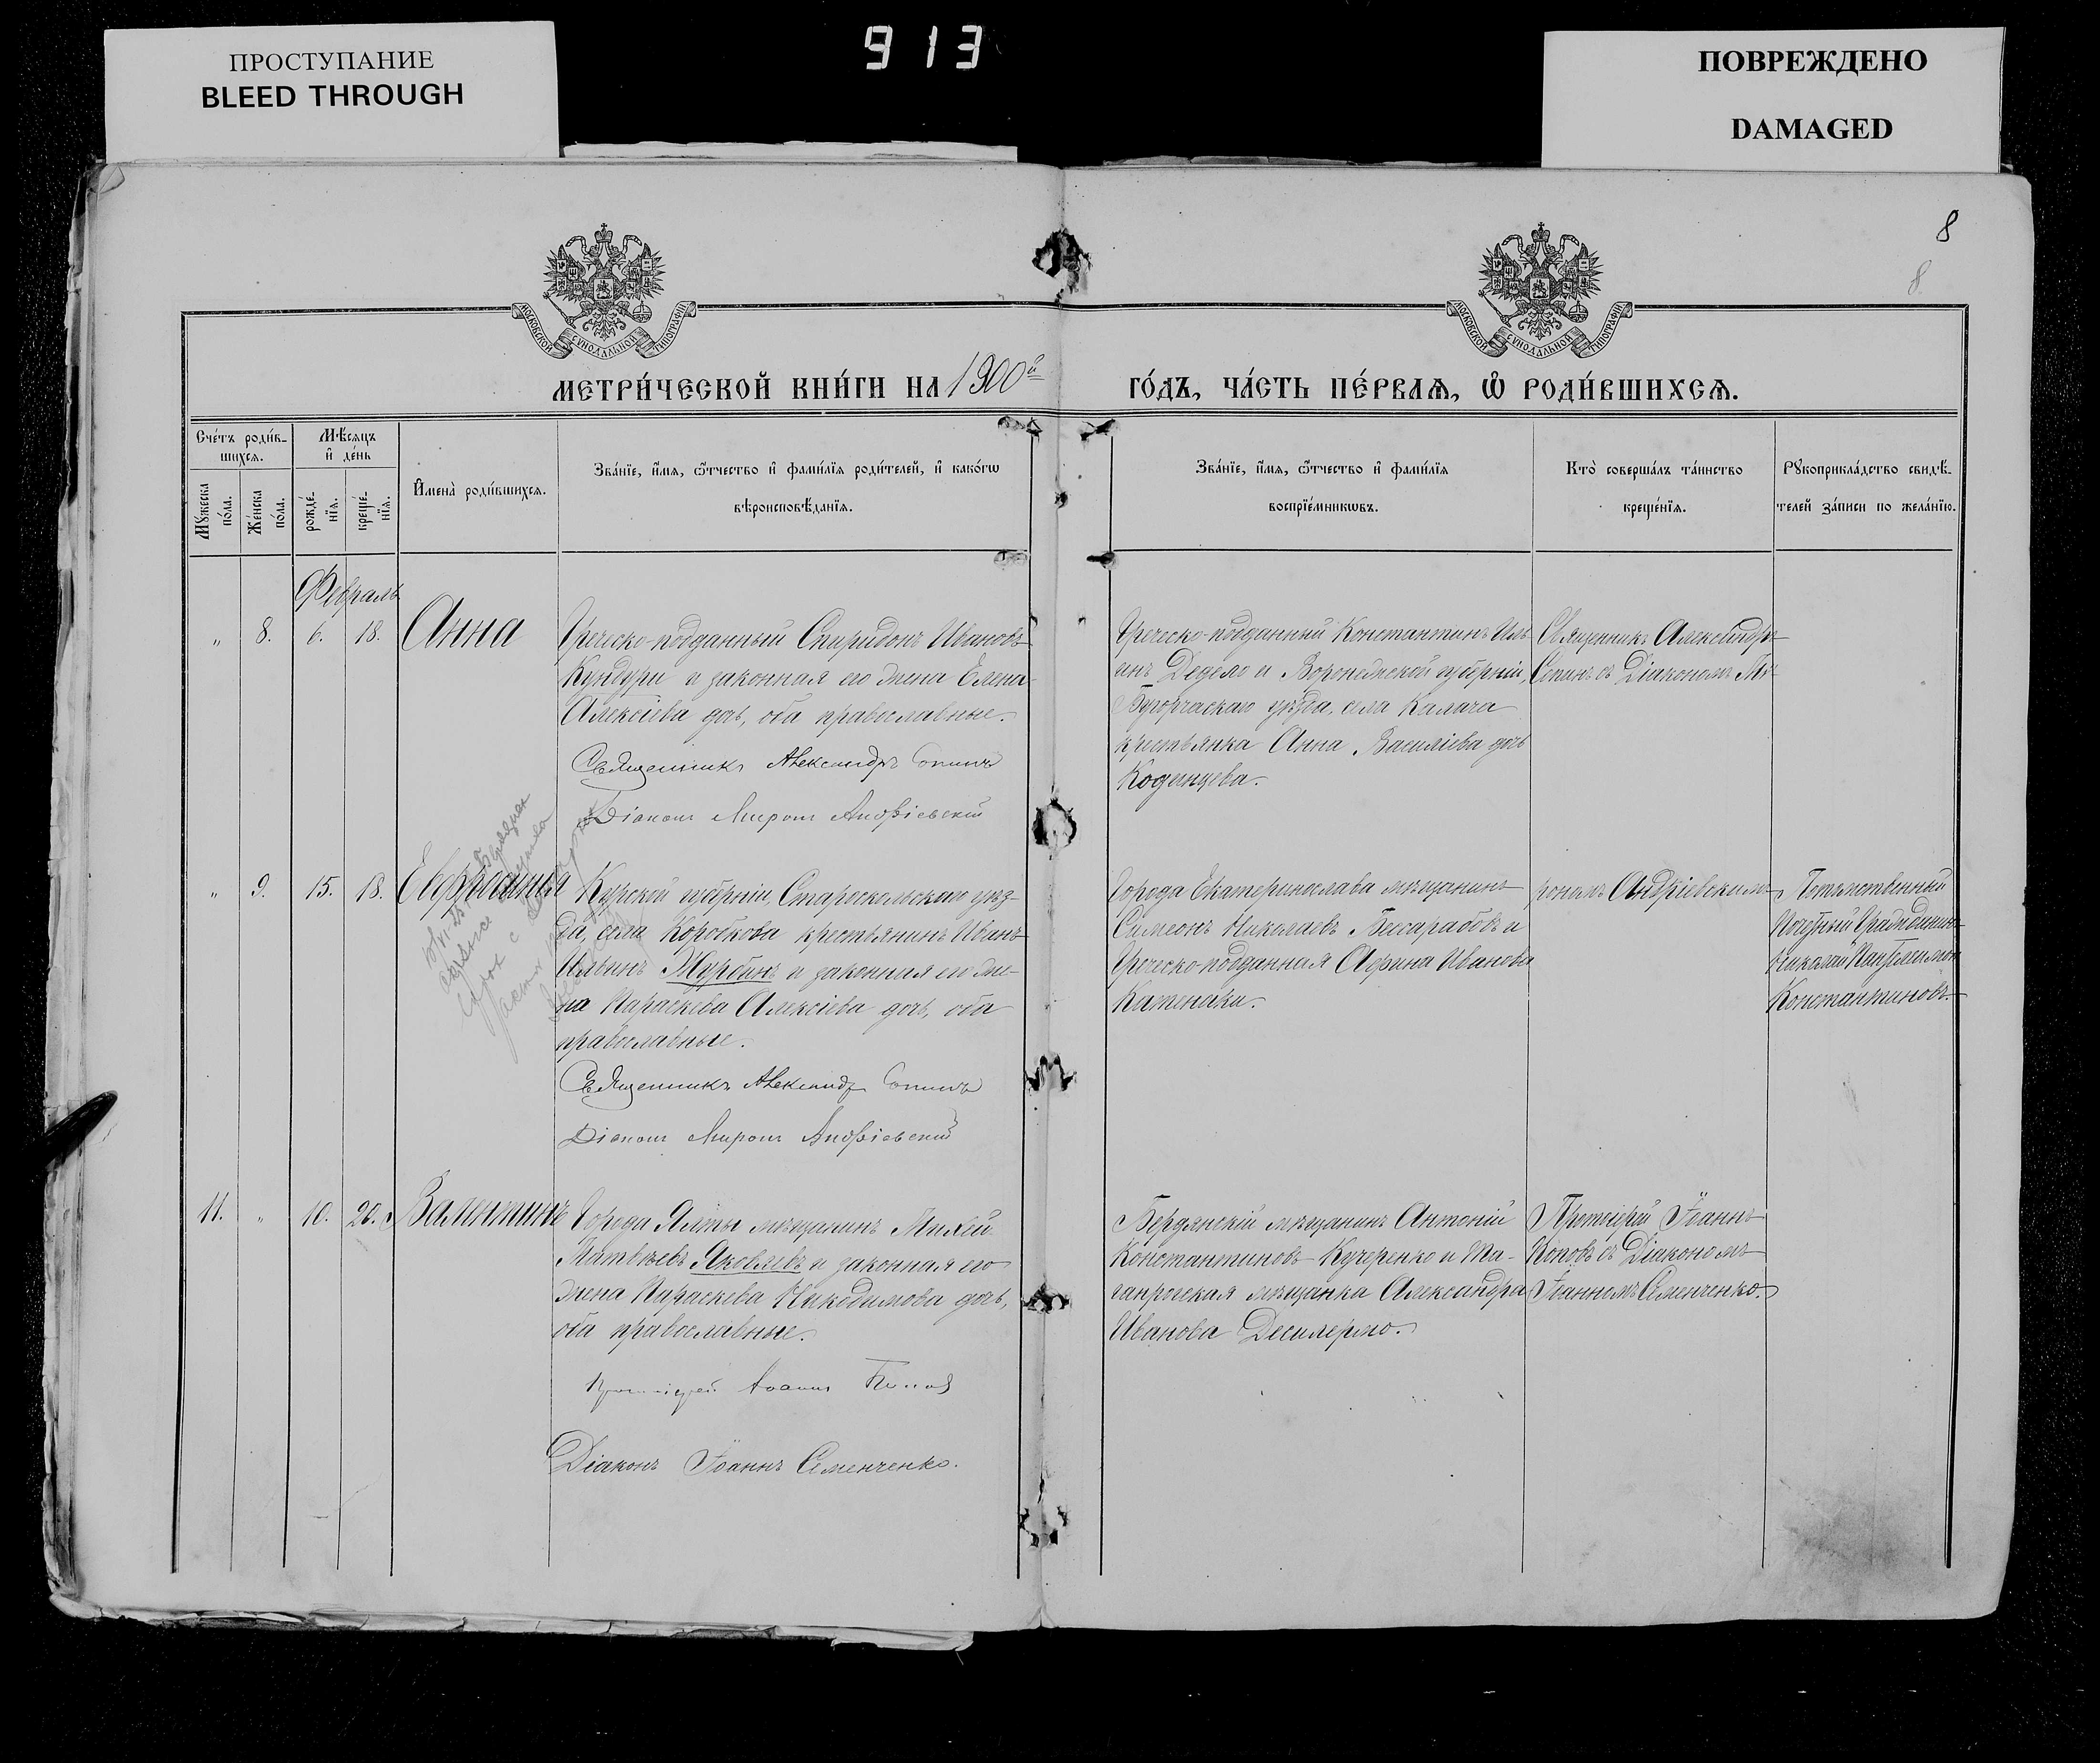 ПРОСТУПАНИЕ
BLEED THROUGH
913
ПОВРЕЖДЕНО
DAMAGED
8
8
МОСКОВСКОЙ СѴНОДАЛЬНОЙ ТИПОГРАФІИ
МОСКОВСКОЙ СѴНОДАЛЬНОЙ ТИПОГРАФІИ
МЕТРИ́ЧЕСКОЙ КНИ́ГИ НА 1900й
ГО́ДЪ, ЧА́СТЬ ПЕ́РВАѦ, Ѡ҆ РОДИ́ВШИХСѦ.
Сче́тъ роди́в-
шихсѧ.
Мꙋ́жеска по́ла.
Же́нска по́ла.
Мѣ́сѧцъ
и҆ де́нь
рожде́-
нїѧ.
креще́-
нїѧ.
И҆мена̀ роди́вшихсѧ.
Зва́нїе, и҆́мѧ, ѻ҆́тчество и҆ фами́лїѧ роди́телей, и҆ како́гѡ
вѣроисповѣ́данїѧ.
Зва́нїе, и҆́мѧ, ѻ҆́тчество и҆ фами́лїѧ
воспрїе́мникѡвъ.
Кто̀ соверша́лъ та́инство
креще́нїѧ.
Рꙋкоприкла́дство свидѣ́-
телей за́писи по жела́нїю.
Февраль
„ 8. 6. 18. Анна
Греческо-подданный Спиридонъ Ивановъ
Кундури и законная его жена Елена
Алексіева дочь, оба православные.
Священникъ Александръ Сопинъ
Діаконъ Миронъ Андріевскій
Греческо-подданный Константинъ Иль-
инъ Дедело и Воронежской губерніи,
уѣзда, села Калача
крестьянка Анна Василіева дочь
Кодинцева.
Священникъ Александръ
Сопинъ съ Діакономъ Ми-
„ 9. 15. 18. Евфросинія
Курской губерніи, Старооскольскаго уѣз-
да, села Коробкова крестьянинъ Иванъ
Ильинъ Журбинъ и законная его же-
на Параскева Алексіева дочь, оба
православные.
Священникъ Александръ Сопинъ
Діаконъ Миронъ Андріевскій
Города Екатеринослава мѣщанинъ
Симеонъ Николаевъ Бессарабовъ и
Греческо-подданная Афина Иванова
Катенаки.
рономъ Андріевскимъ
Потомственный
Почетный Гражданинъ
Николай Пантелеимон
Константиновъ.
11. „ 10. 20. Валентинъ
Города Ялты мѣщанинъ Михей
Матвѣевъ Яковлевъ и законная его
жена Параскева Никодимова дочь,
оба православные.
Протоіерей Іоаннъ Поповъ
Діаконъ Іоаннъ Семенченко.
Бердянскій мѣщанинъ Антоній
Константиновъ Кучеренко и Та-
ганрогская мѣщанка Александра
Иванова Десилермо.
Протоіерей Іоаннъ
Поповъ съ Діакономъ
Іоанномъ Семенченко.